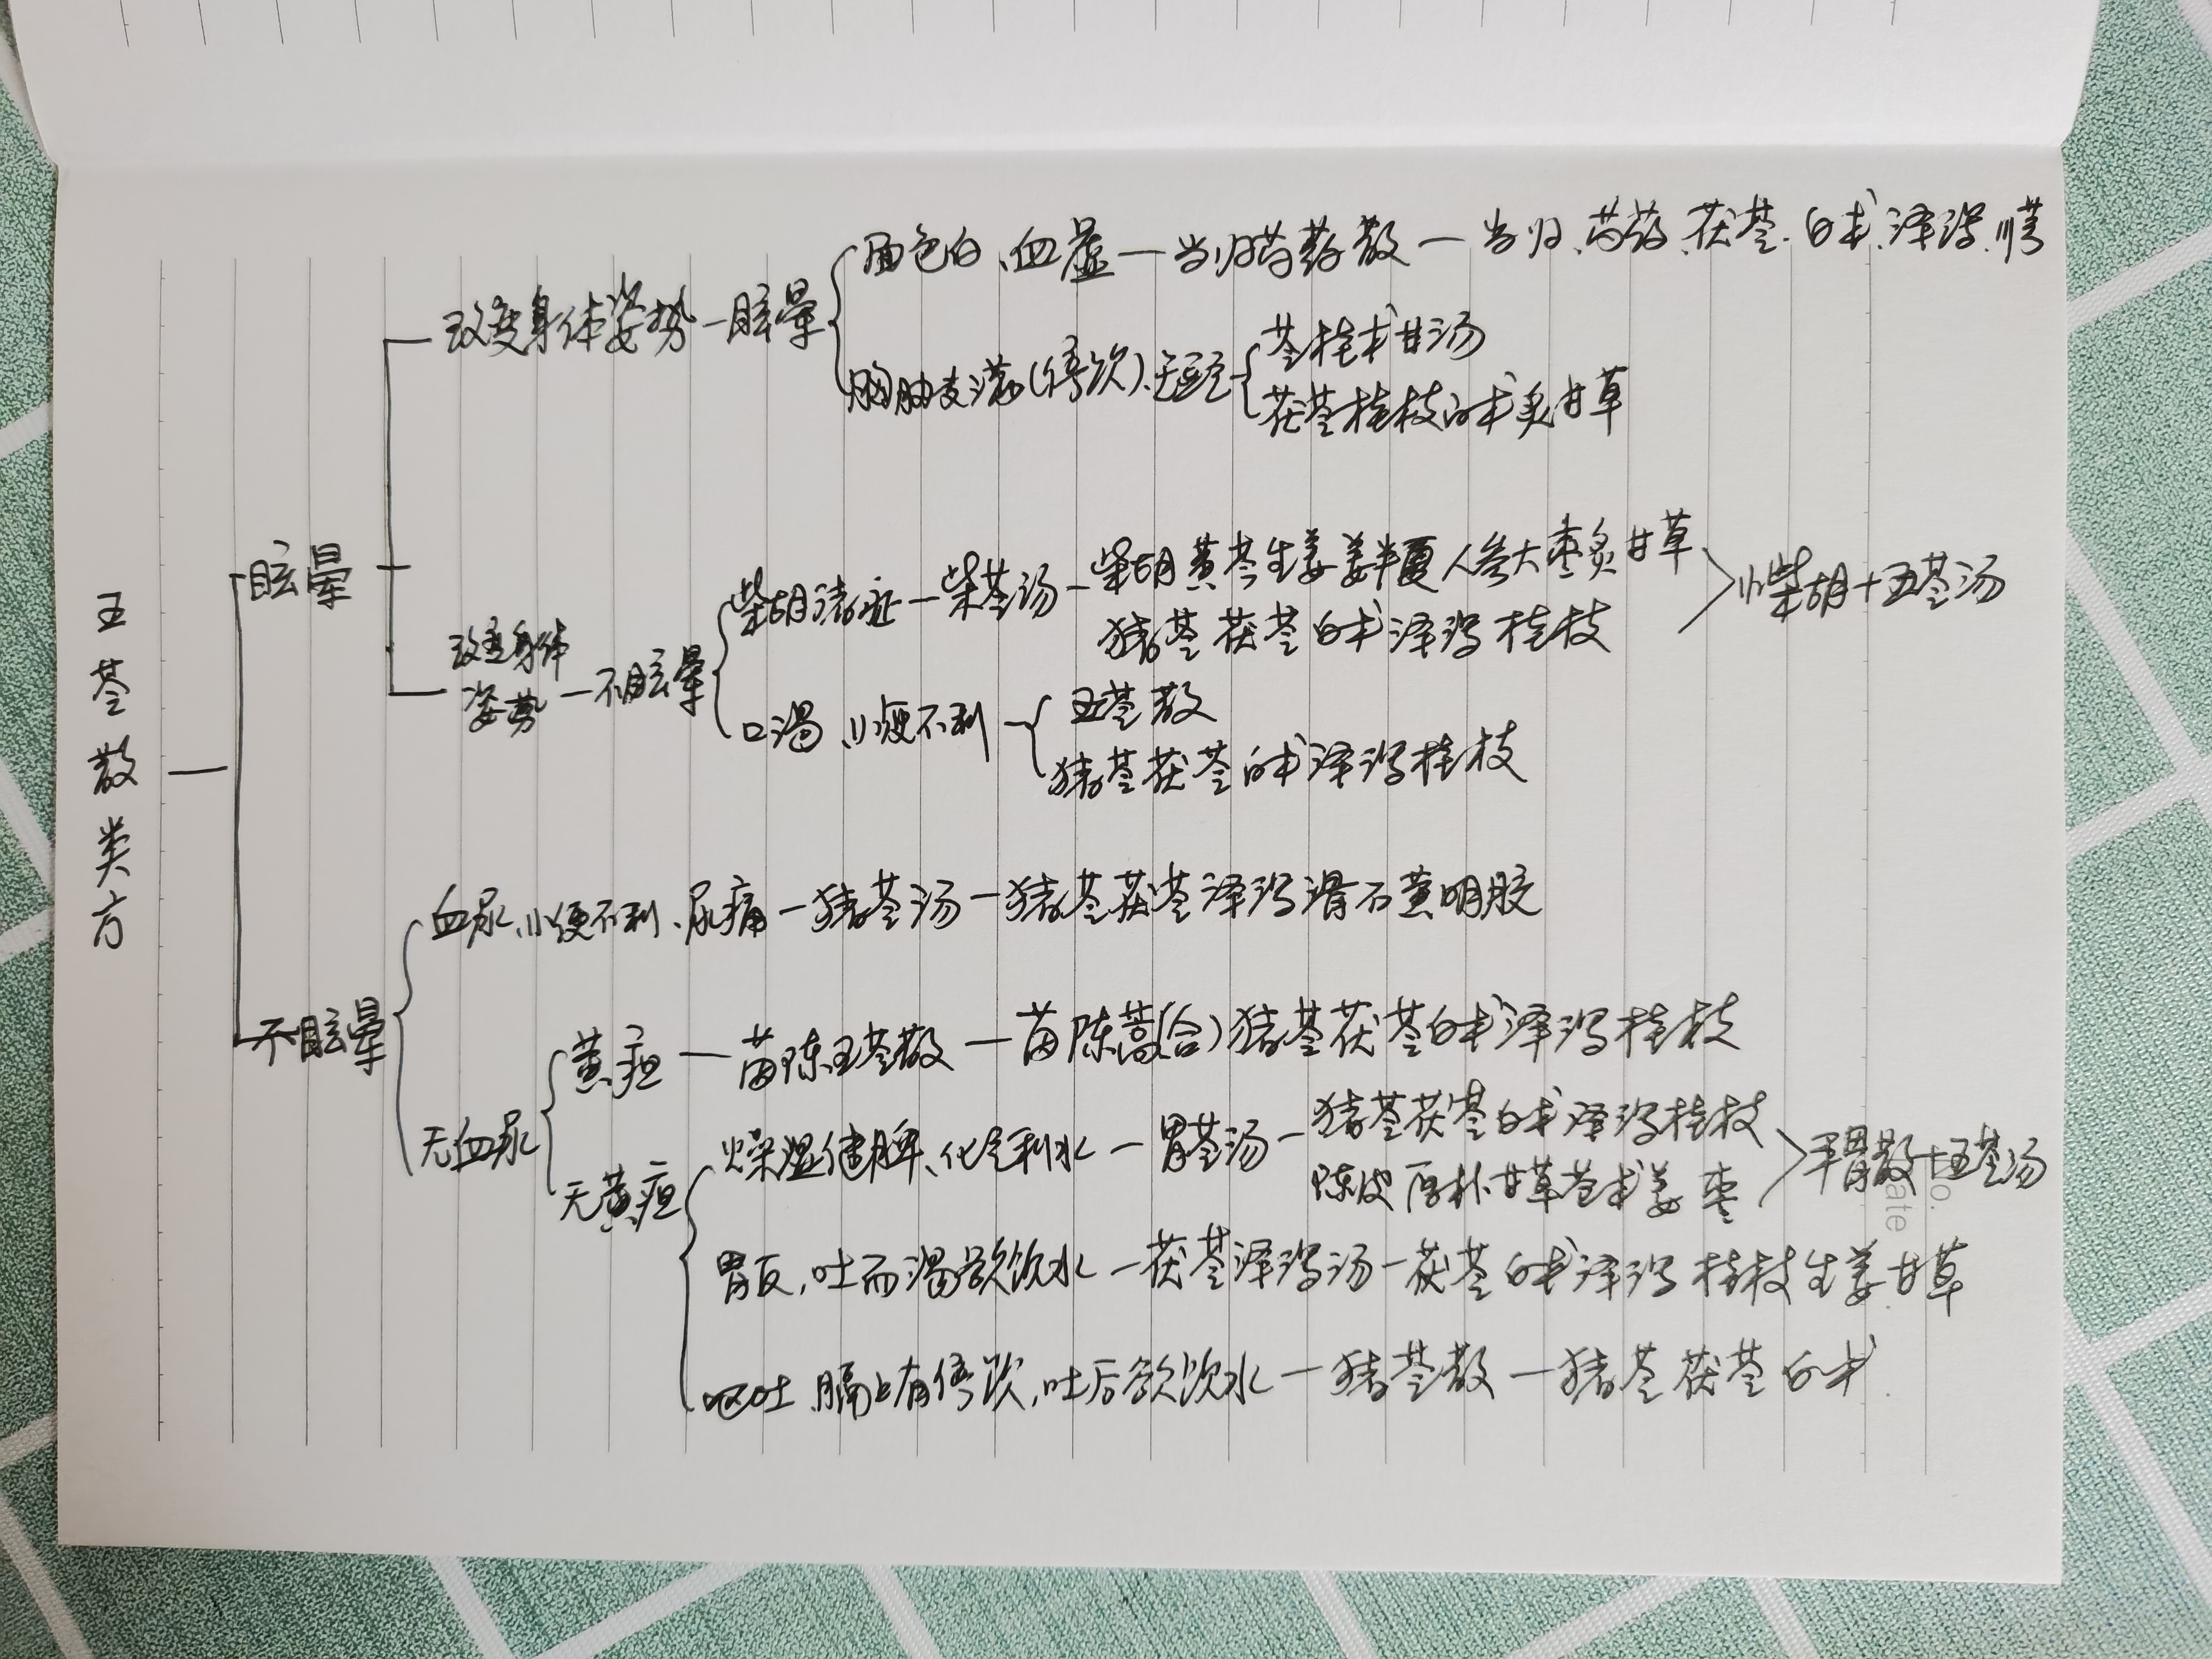 五苓散类方
眩晕
改变身体姿势—眩晕
面色白、血虚—当归芍药散—当归、芍药、茯苓、白术、泽泻、川芎
胸胁支满(停饮)、
苓桂术甘汤
茯苓桂枝白术炙甘草
改变身体
姿势—不眩晕
柴胡诸症—柴苓汤—柴胡黄芩生姜姜半夏人参大枣炙甘草
猪苓茯苓白术泽泻桂枝
小柴胡+五苓汤
口渴、小便不利
五苓散
猪苓茯苓白术泽泻桂枝
不眩晕
血尿、小便不利、尿痛—猪苓汤—猪苓茯苓泽泻滑石黄明胶
无血尿
黄疸—茵陈五苓散—茵陈蒿(合)猪苓茯苓白术泽泻桂枝
无黄疸
燥湿健脾、化气利水—胃苓汤—猪苓茯苓白术泽泻桂枝
陈皮厚朴甘草苍术姜枣
平胃散+五苓汤
胃反,吐而渴欲饮水—茯苓泽泻汤—茯苓白术泽泻桂枝生姜甘草
呕吐、膈上有停饮,吐后欲饮水—猪苓散—猪苓茯苓白术
No.
Date